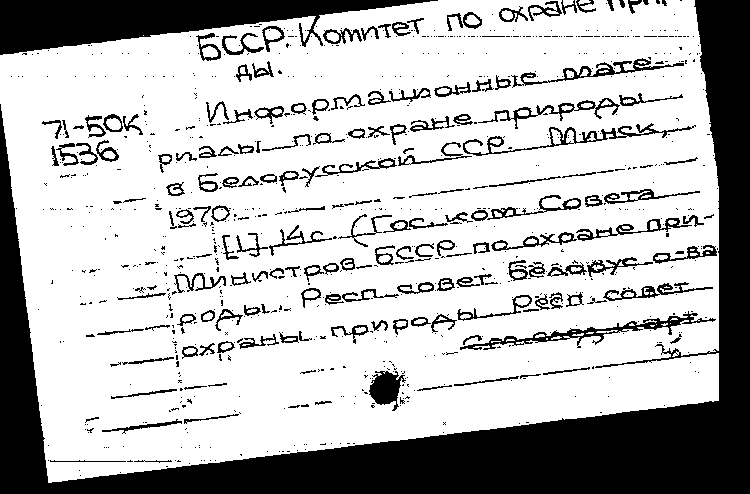 БССР. Комитет по охране приро-
ды.
71-БОК
1536
Информационные мате-
риалы по охране природы
в Белорусской ССР. Минск,
1970.
[1], 14 с. (Гос. ком. Совета
Министров БССР по охране при-
роды. Респ. совет Белорус. о-ва
охраны природы. Респ. совет
См. след. карт.